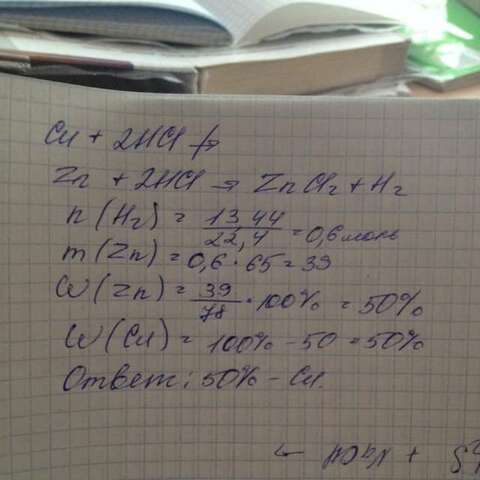 Cu + 2HCl ↛
Zn + 2HCl → ZnCl₂ + H₂
n(H₂) = 13,44/22,4 = 0,6 моль
m(Zn) = 0,6 · 65 = 39
W(Zn) = 39/78 · 100% = 50%
W(Cu) = 100% - 50 = 50%
Ответ: 50% - Cu.